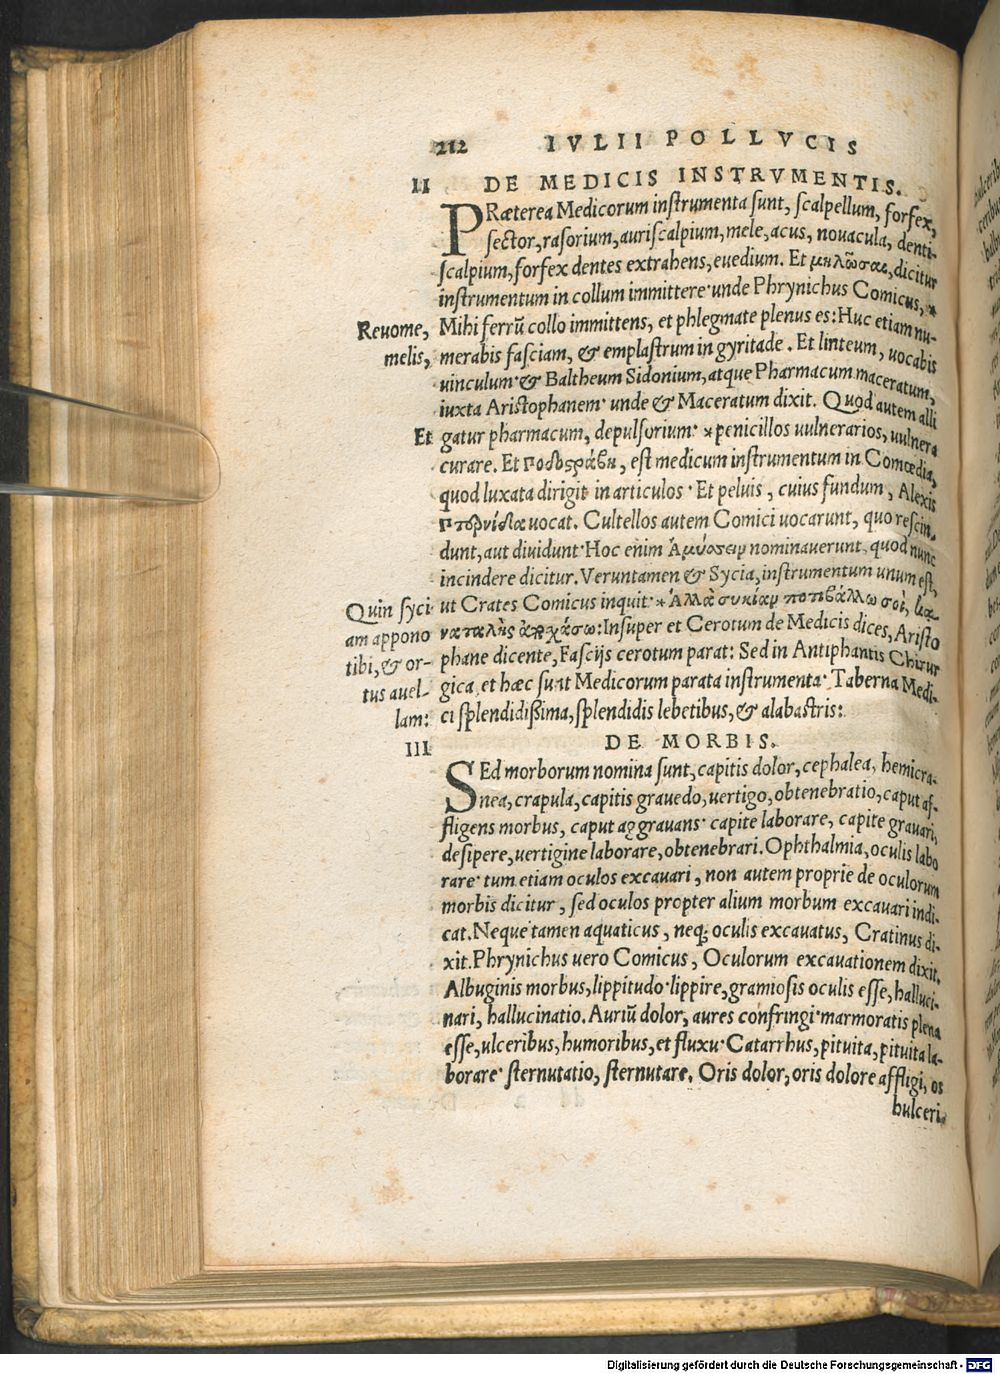 212 IVLII POLLVCIS
II DE MEDICIS INSTRVMENTIS.
PRæterea Medicorum instrumenta sunt, scalpellum, forfex,
sector, rasorium, auriscalpium, mele, acus, nouacula, denti-
scalpium, forfex dentes extrahens, euedium. Et μηλῶσαι, dicitur
instrumentum in collum immittere· unde Phrynichus Comicus, *
Reuome, Mihi ferrũ collo immittens, et phlegmate plenus es: Huc etiam nu-
melis, merabis fasciam, & emplastrum in gyritade. Et linteum, uocabis
uinculum· & Baltheum Sidonium, atque Pharmacum maceratum,
iuxta Aristophanem· unde & Maceratum dixit. Quod autem alli
Et gatur pharmacum, depulsorium· * penicillos uulnerarios, uulnera
curare. Et Ποδοςράβη, est medicum instrumentum in Comœdia,
quod luxata dirigit in articulos· Et peluis, cuius fundum, Alexis
Πτορνίδα uocat. Cultellos autem Comici uocarunt, quo rescin,
dunt, aut diuidunt· Hoc enim Ἀμύσσειν nominauerunt, quod nunc
incindere dicitur. Veruntamen & Sycia, instrumentum unum est,
Quin syci ut Crates Comicus inquit· * Ἀλλὰ συκίαν ποτιβάλλω σοὶ,
am appono Insuper et Cerotum de Medicis dices, Aristo
tibi, & or- phane dicente, Fascijs cerotum parat: Sed in Antiphantis Chirur
tus auel- gica, et hæc sunt Medicorum parata instrumenta· Taberna Medi-
lam: ci splendidißima, splendidis lebetibus, & alabastris:
III DE MORBIS.
SEd morborum nomina sunt, capitis dolor, cephalea, hemicra-
nea, crapula, capitis grauedo, uertigo, obtenebratio, caput af-
fligens morbus, caput aggrauans· capite laborare, capite grauari,
desipere, uertigine laborare, obtenebrari. Ophthalmia, oculis labo
rare· tum etiam oculos excauari, non autem proprie de oculorum
morbis dicitur, sed oculos propter alium morbum excauari indi-
cat. Neque tamen aquaticus, neq; oculis excauatus, Cratinus di-
xit. Phrynichus uero Comicus, Oculorum excauationem dixit.
Albuginis morbus, lippitudo· lippire, gramiosis oculis esse, halluci-
nari, hallucinatio. Auriũ dolor, aures confringi· marmoratis plena
esse, ulceribus, humoribus, et fluxu· Catarrhus, pituita, pituita la-
borare· sternutatio, sternutare. Oris dolor, oris dolore affligi, os
hulceri.
Digitalisierung gefördert durch die Deutsche Forschungsgemeinschaft - DFG